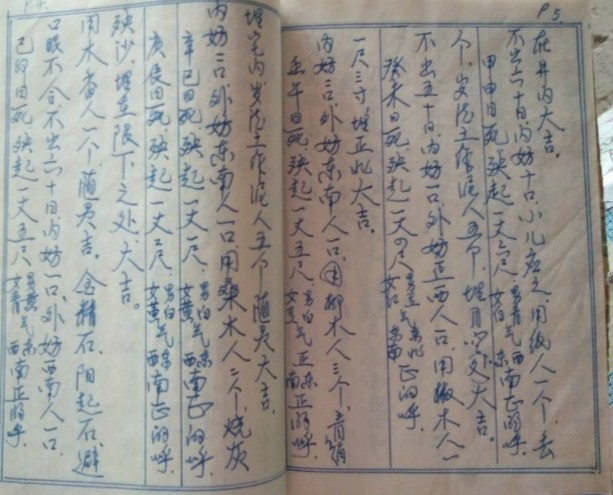 P5.
在井内大吉。
不出六十日，内妨十口，小儿应之，用纸人一个，去
甲申日死，殃起一丈三尺，男青气西 东南正的呼，
个，岁泥土作泥人五个，埋月 处大吉。
不出五十日，内妨一口，外妨正西人一口，用 木人一
癸未日死，殃起一丈四尺，正的呼。
一尺三寸，埋正北大吉。
内妨二口，外妨东南人一口，用柳木人三个，青绢
壬午日死，殃起一丈五尺，男白气正东 南正的呼。
埋宅内岁泥土作泥人五个，随灵大吉。
内妨二口，外妨东南人一口，用桑木人二个，烧灰
辛巳日死，殃起一丈一尺，男白气东 女黄气西南正的呼，
庚辰日死，殃起一丈二尺，男白气东 女黄气西南正的呼，
殃沙，埋在限下之处，大吉。
用木香人一个随灵吉。金精石，阳起石，避
口眼不合，不出六十日，内妨一口，外妨西南人一口，
己卯日死，殃起一丈五尺，男黄气东 女青气西南正的呼，